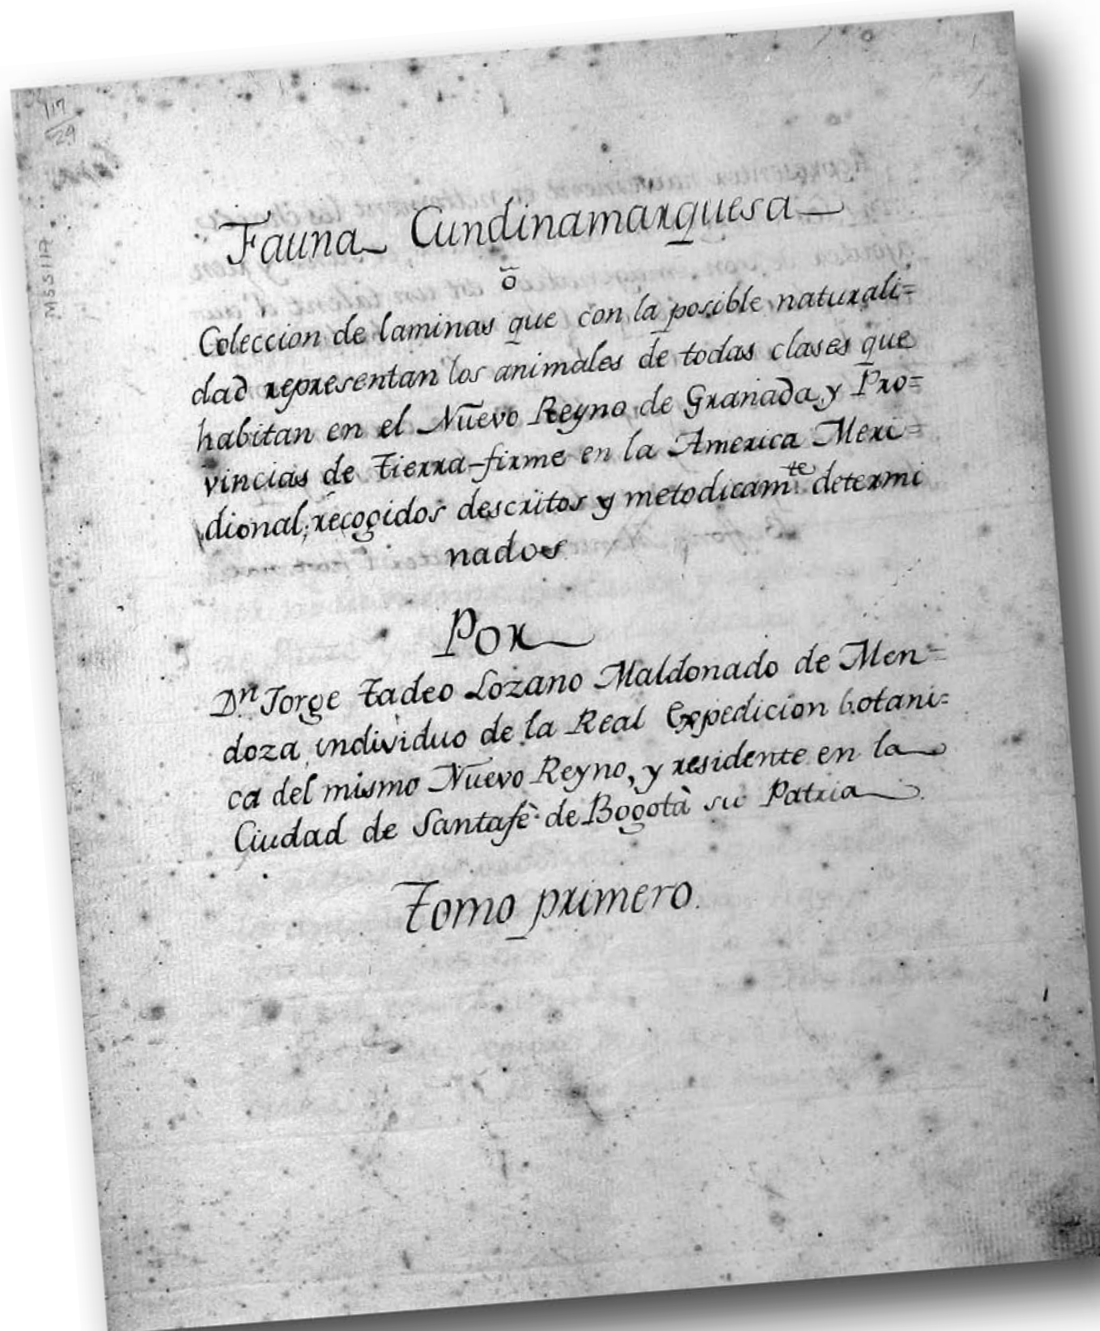 117
29
MSS 117
Fauna Cundinamarquesa
ō
Coleccion de laminas que con la posible naturali=
dad representan los animales de todas clases que
habitan en el Nuevo Reyno de Granada, y Pro=
vincias de Tierra-firme en la America Meri=
dional; recogidos descritos y metodicamte determi
nados
Por
Dn Jorge Tadeo Lozano Maldonado de Men=
doza individuo de la Real Expedicion botani=
ca del mismo Nuevo Reyno, y residente en la
Ciudad de Santafè de Bogotà su Patria.
Tomo primero.